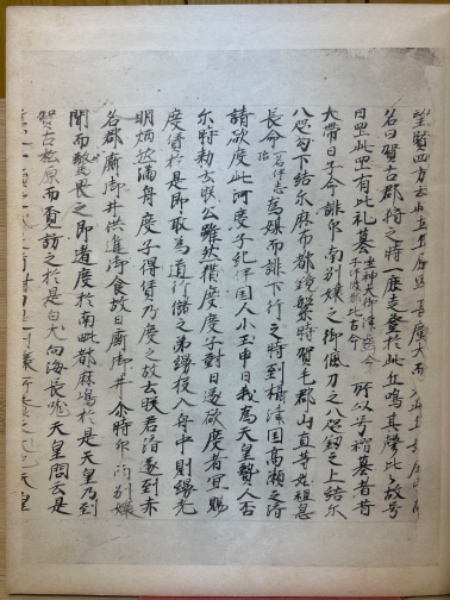 望覧四方云此丘
名曰賀古郡狩之時一鹿走登於此丘鳴其聲比々故号
日罡此罡有比礼墓 所以号褶墓者昔
大帶日子命誂印南別孃之御佩刀之八咫釼之上結尓
八咫勾下結尓麻布都鏡繋時賀毛郡山直等始祖息
長命一名伊志治為媒而誂下行之時到攝津国高瀬之濟
請欲度此河度子紀伊国人小玉申曰我為天皇贄人否
尓時勅云朕公雖然猶度度子對曰遂欲度者宜賜
度賃於是即取為道行儲之弟縵投入舟中則縵光
明炳然満舟度子得賃乃度之故云朕君濟遂到赤
石郡厮御井供進御食故曰厮御井尓時印南別孃
聞而驚畏之即遁度於南毗都麻嶋於是天皇乃到
賀古松原而覓訪之於是白犬向海長吠天皇問云是
天皇